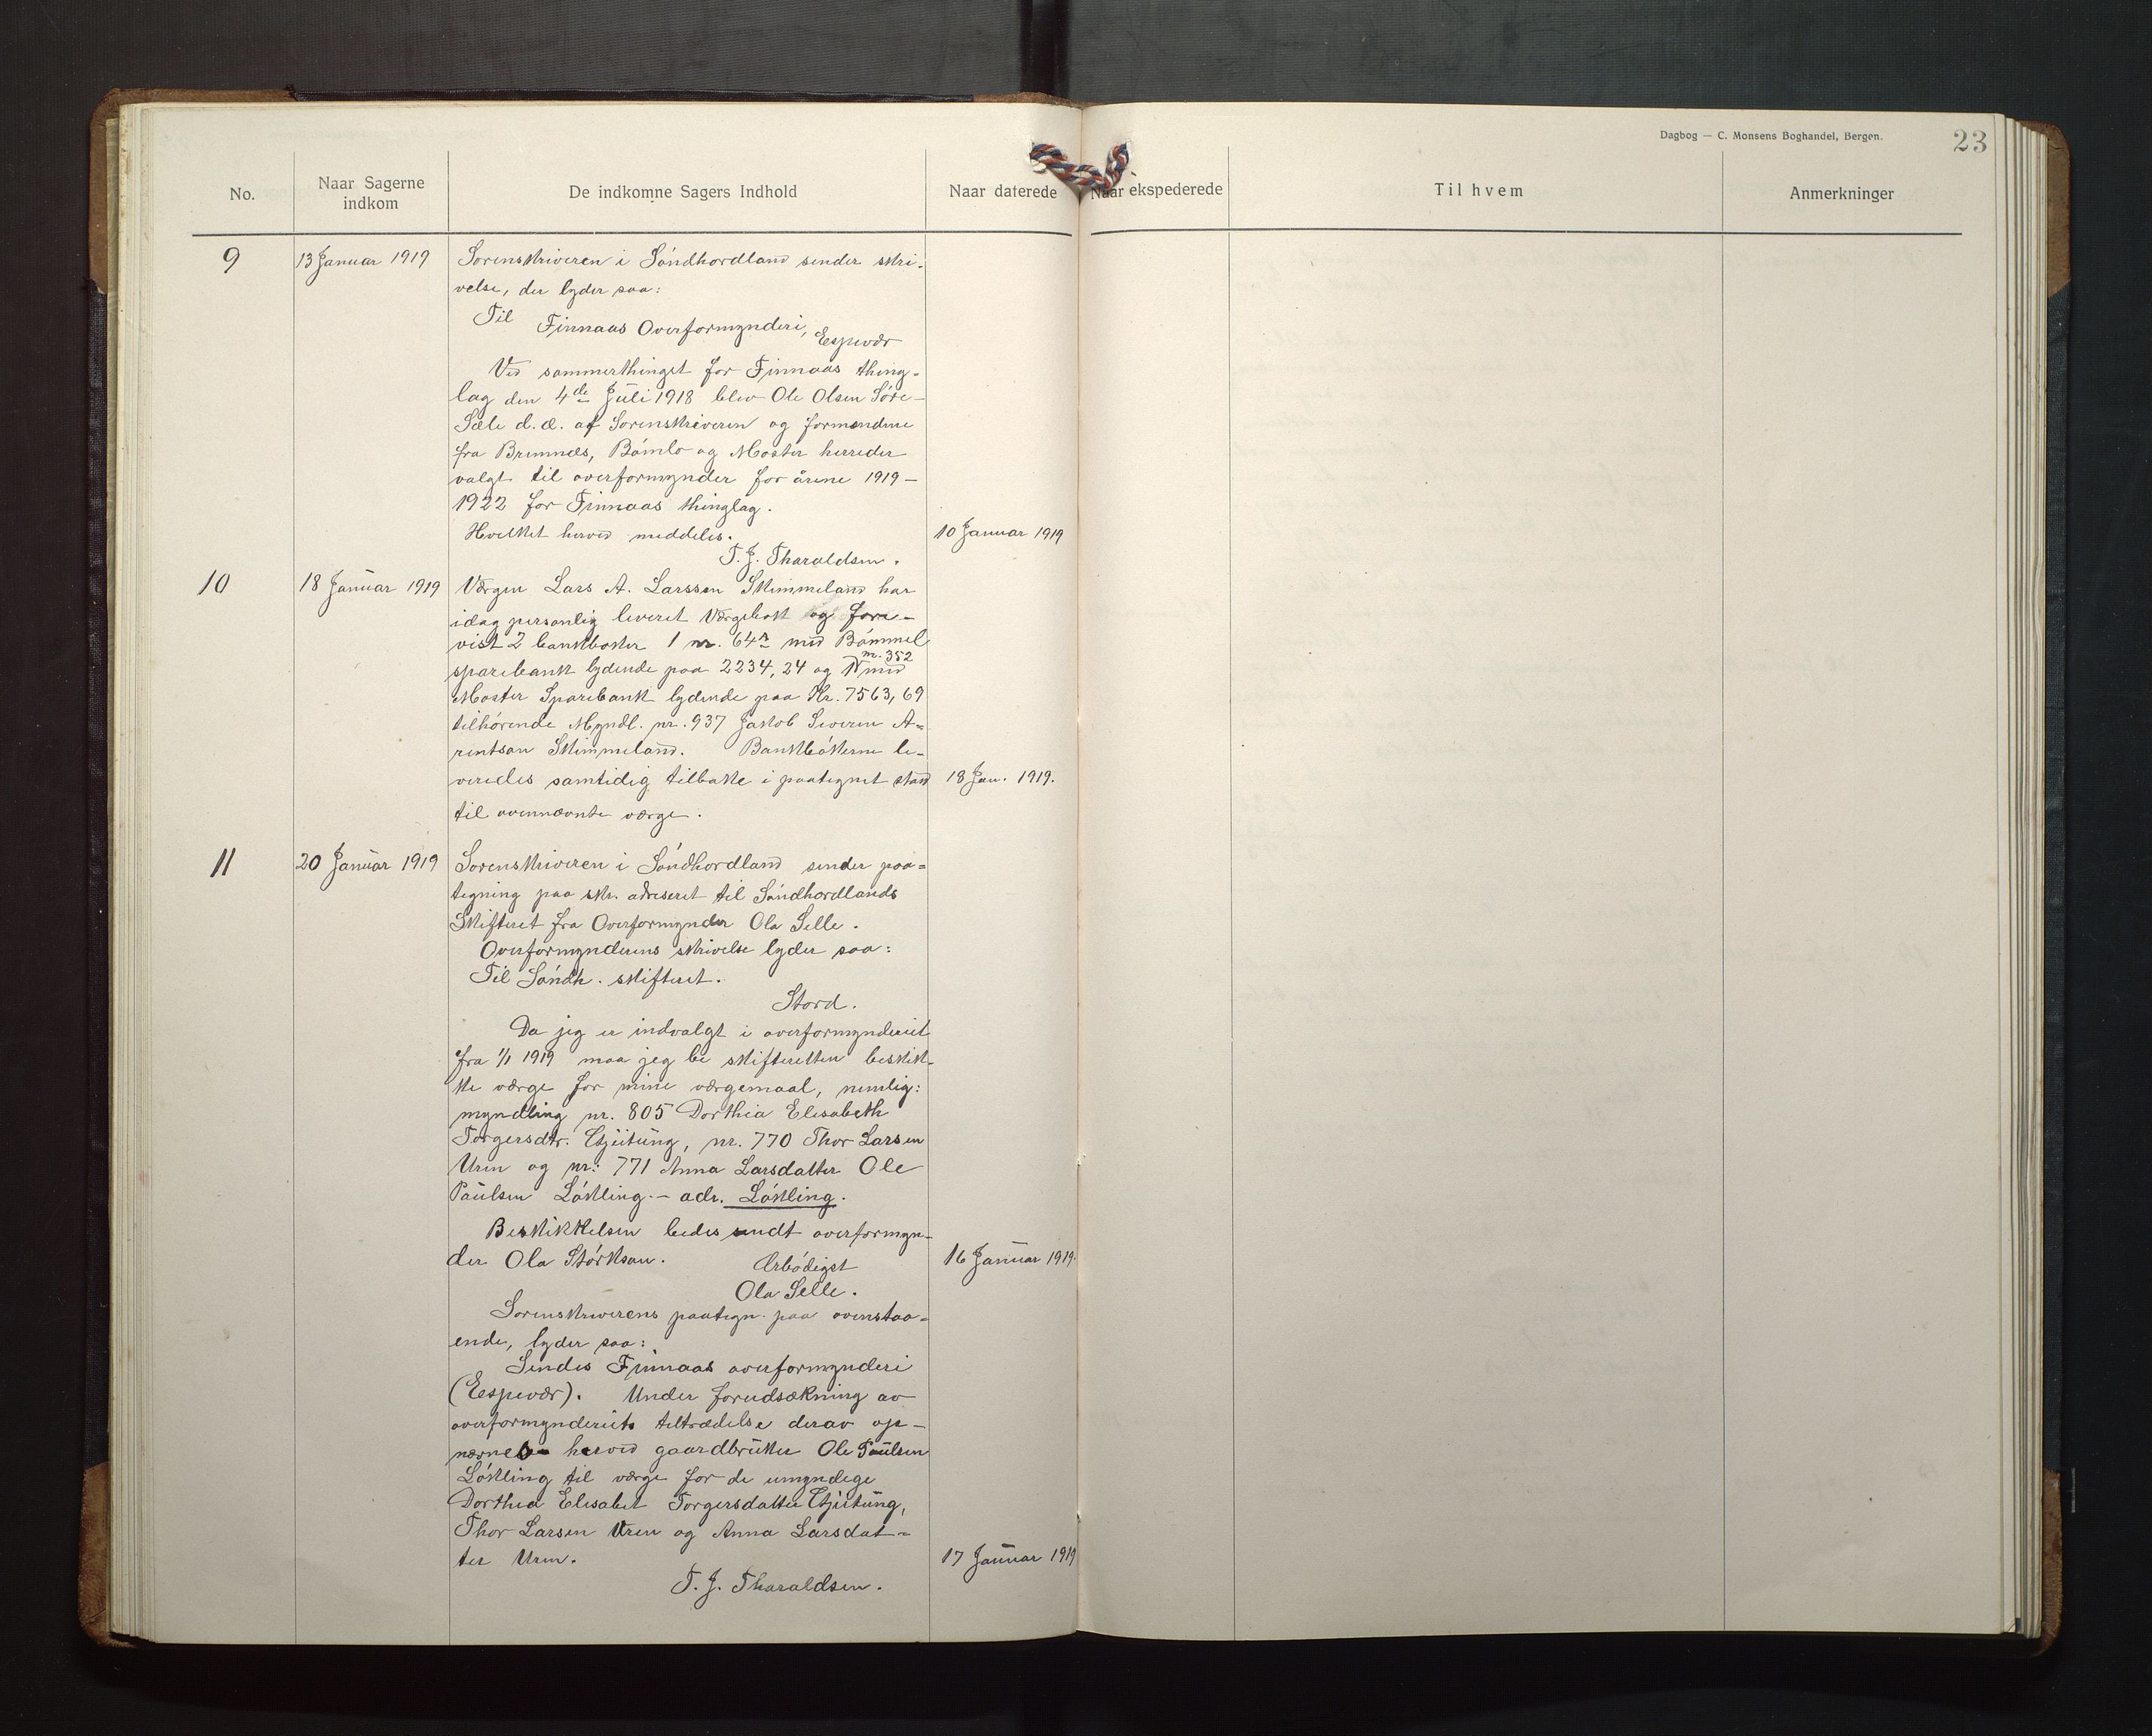 Dagbog — C. Monsens Boghandel, Bergen.
23
No.
Naar Sagerne indkom
De indkomne Sagers Indhold
Naar daterede
Naar ekspederede
Til hvem
Anmerkninger
9 13 Januar 1919 Sorenskriveren i Söndhordland sender skri-
velse, der lyder saa:
Til Finnaas Overformynderi,
Espevær
Ved sommerthinget for Finnaas thing-
lag den 4de Juli 1918 blev Ole Olsen Söre-
Sæle d. æ. af Sorenskriveren og formændene
fra Bremnes, Bömlo og Moster herreder
valgt til overformynder for årene 1919-
1922 for Finnaas thinglag.
Hvilket herved meddeles. 10 Januar 1919
T. J. Tharaldsen.
10 18 Januar 1919 Værgen Lars A. Larssen Skimmeland har
idag personlig leveret Værgebok og fore-
vist 2 bankboker 1 nr. 64 med Bömmel
sparebank lydende paa 2234,24 og 1 nr. 352 med
Moster Sparebank lydende paa Kr. 7563,69
tilhörende Myndl. nr. 937 Jakob Severin A-
rentsen Skimmeland. Bankbökerne le-
veredes samtidig tilbake i paategnet stand 18 Jan. 1919.
til ovennævnte værge.
11 20 Januar 1919 Sorenskriveren i Söndhordland sender paa-
tegning paa skr. adreseret til Söndhordlands
Skifteret fra Overformynder Ola Selle.
Overformynderens skrivelse lyder saa:
Til Söndh. skifteret.
Stord.
Da jeg er indvalgt i overformynderiet
fra 1/1 1919 maa jeg be skifteretten beskik-
ke værge for mine værgemaal, nemlig:
myndling nr. 805 Dorthia Elisabeth
Torgersdtr. Gjeitung, nr. 770 Thor Larsen
Uren og nr: 771 Anna Larsdatter Ole
Paulsen Lökling. - adr. Lökling.
Beskikkelsen bedes sendt overformyn-
der Ola Störksen. 16 Januar 1919.
Ærbödigst
Ola Selle.
Sorenskriverens paategn. paa ovenstaa-
ende, lyder saa:
Sendes Finnaas overformynderi
(Espevær). Under forudsækning av
overformynderiets tiltrædelse derav op-
nævnes herved gaardbruker Ole Paulsen
Lökling til værge for de umyndige
Dorthea Elisabet Torgersdatter Gjeitung,
Thor Larsen Uren og Anna Larsdat-
ter Uren. 17 Januar 1919
T. J. Tharaldsen.